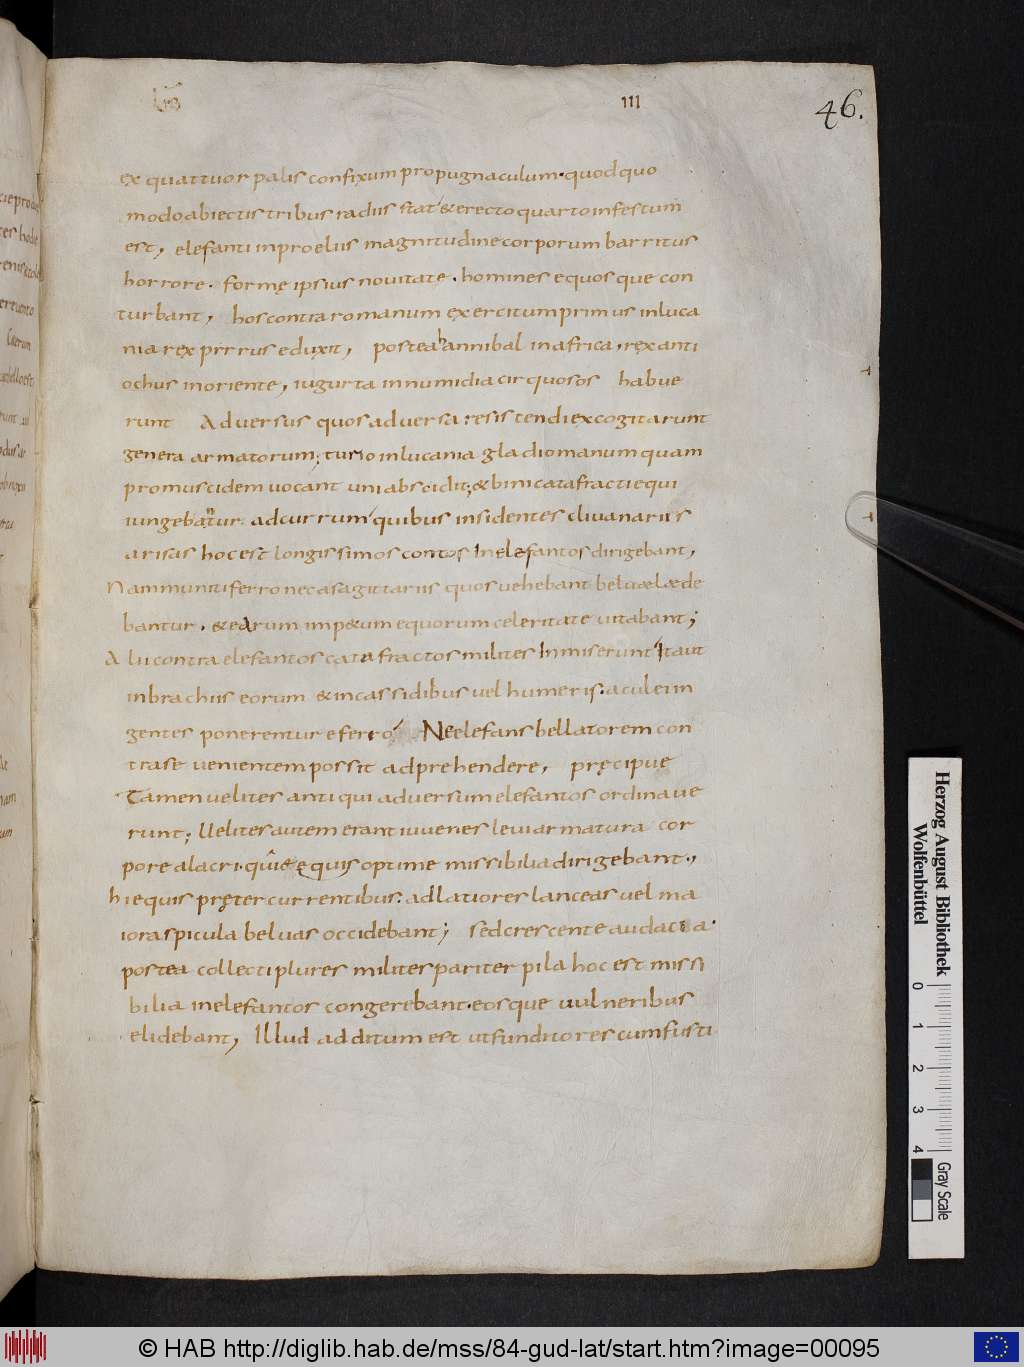 III
46.
ex quattuor palis confixum propugnaculum. quodquo
modo abiectis tribus radiis stat & erecto quarto infestum
est, elefanti in proeliis magnitudine corporum barritus
horrore. formę ipsius novitate. homines equos que con
turbant, hos contra romanum exercitum primus in luca
nia rex pirrus eduxit, postea hannibal in africa, rex anti
ochus in oriente, iugurta in numidia cirquos os habue
runt Adversus quos adversa: resistendi excogitarunt
genera armatorum; turio in lucania gladio manum quam
promuscidem uocant uni abscidit; & bini catafracti equi
iungebantur ad currum quibus insidentes clivanarii s
arisas hoc est longissimos contos In elefantos dirigebant,
Nam muniti ferro nec a sagittariis quos vehebant belvae læde
bantur. & earum imp&um equorum celeritate vitabant;
Alii contra elefantos catafractos milites Inmiserunt Ita ut
in brachiis eorum & in cassidibus vel humeris. aculei in
gentes ponerentur e ferro Ne elefans bellatorem con
tra se venientem possit adprehendere, pręcipue
Tamen velites antiqui adversum elefantos ordinave
runt; Uelites autem erant iuvenes levi armatura cor
pore alacri. qui ex ęquis optime missibilia dirigebant.,
hi equis pręter currentibus: ad latiores lanceas vel ma
iora spicula beluas occidebant; sed crescente audacia.
postea collecti plures milites pariter pila hoc est missi
bilia in elefantos congerebant. eosque vulneribus
elidebant, Illud additum est ut funditores cum fusti
Herzog August Bibliothek
Wolfenbüttel
0 1 2 3 4
Gray Scale
© HAB http://diglib.hab.de/mss/84-gud-lat/start.htm?image=00095